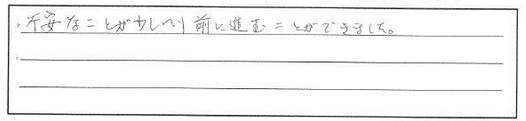 ・不安なことが少しへり前に進むことができました。